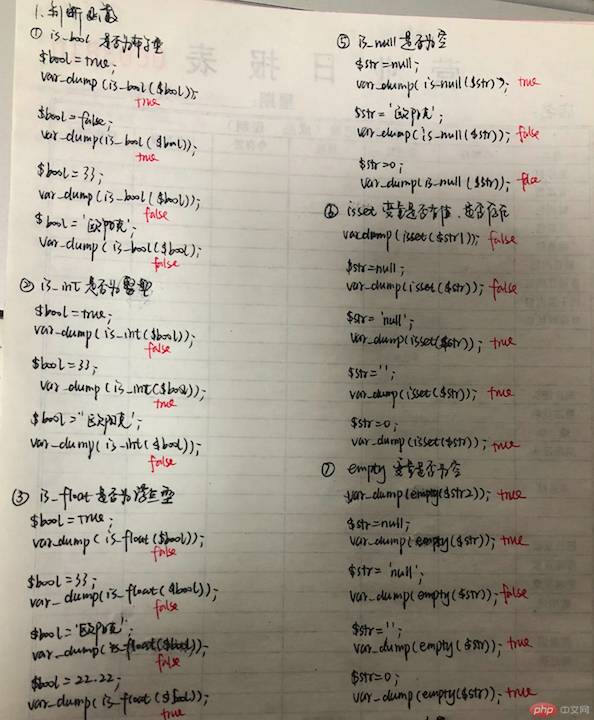 1. 判断函数
① is_bool 是否为布尔型
$bool = true;
var_dump (is_bool ($bool));
true
$bool = false;
var_dump(is_bool ($bool));
true
$bool = 33;
var_dump (is_bool ($bool));
false
$bool = '欧阳克';
var_dump ( is_bool ($bool);
false
② is_int 是否为整型
$bool = true;
var_dump ( is_int ($bool));
false
$bool = 33;
var_dump ( is_int ($bool));
true
$bool = '欧阳克';
var_dump( is_int ($bool));
false
③ is_float 是否为浮点型
$bool = true;
var_dump ( is_float ($bool));
false
$bool = 33;
var_dump( is_float ($bool));
false
$bool = '欧阳克';
var_dump (is_float ($bool));
false
$bool = 22.22;
var_dump (is_float ($bool));
true
⑤ is_null 是否为空
$str = null;
var_dump( is_null ($str)); true
$str = '欧阳克';
var_dump( is_null ($str)); false
$str = 0;
var_dump( is_null ($str)); false
⑥ isset 变量是否有值、是否存在
var_dump (isset($str1)); false
$str = null;
var_dump (isset($str)); false
$str = 'null';
var_dump (isset($str)); true
$str = '';
var_dump (isset($str)); true
$str = 0;
var_dump (isset($str)); true
⑦ empty 变量是否为空
var_dump (empty($str2)); true
$str = null;
var_dump (empty($str)); true
$str = 'null';
var_dump (empty($str)); false
$str = '';
var_dump (empty($str)); true
$str = 0;
var_dump (empty($str)); true
日报表
星期:
php 中文网